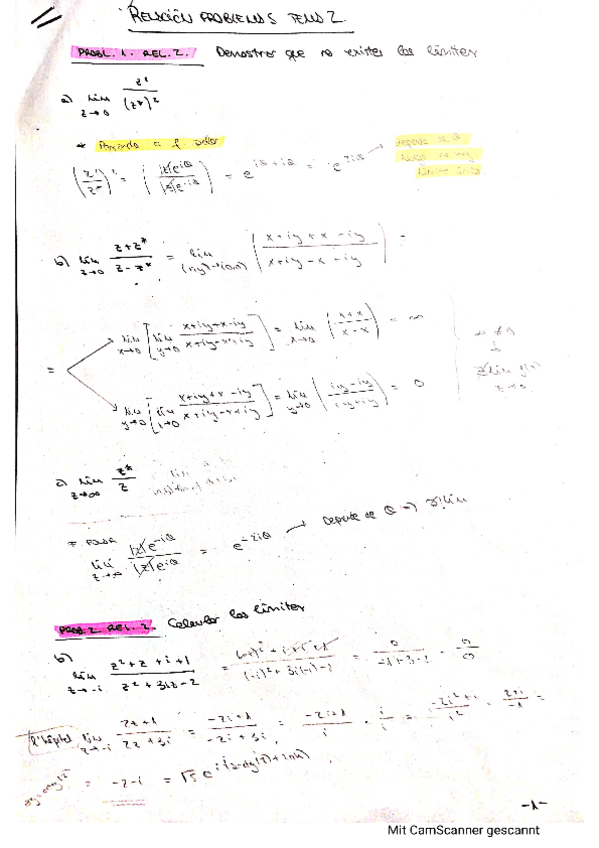 RELACIÓN PROBLEMAS TEMA 2
PROBL. 1. REL. 2. Demostrar que no existen los límites
a) lim z→0 z²/(z*)²
* Pasando a f. polar
(z/z*)² = (|z|e^iθ / |z|e^-iθ) = e^iθ+iθ = e^2iθ → depende de θ
luego no hay
límite único
b) lim z→0 z+z*/z-z* = lim (x,y)→(0,0) (x+iy+x-iy / x+iy-x-iy) =
lim x→0 [lim y→0 x+iy+x-iy / x+iy-x+iy] = lim x→0 (x+x / x-x) = ∞
=
lim y→0 [lim x→0 x+iy+x-iy / x+iy-x+iy] = lim y→0 (iy-iy / iy+iy) = 0
∞ ≠ 0
c) lim z→∞ z*/z
lim z→∞ |z|e^-iθ / |z|e^iθ = e^-2iθ → Depende de θ ⇒ ∄ lim
PROB. 2 REL. 2. Calcular los límites
b) lim z→-i z²+z+i+1 / z²+3iz-2 = (-i)²+i+1 / (-i)²+3i(-i)-2 = 0 / -1+3-2 = 0/0
L'hôpital lim z→-i 2z+1 / 2z+3i = -2i+1 / -2i+3i = -2i+1 / i · i/i = -2i²+i / i² = 2+i / -1 =
= -2-i = √5 e^
-1-
Mit CamScanner gescannt